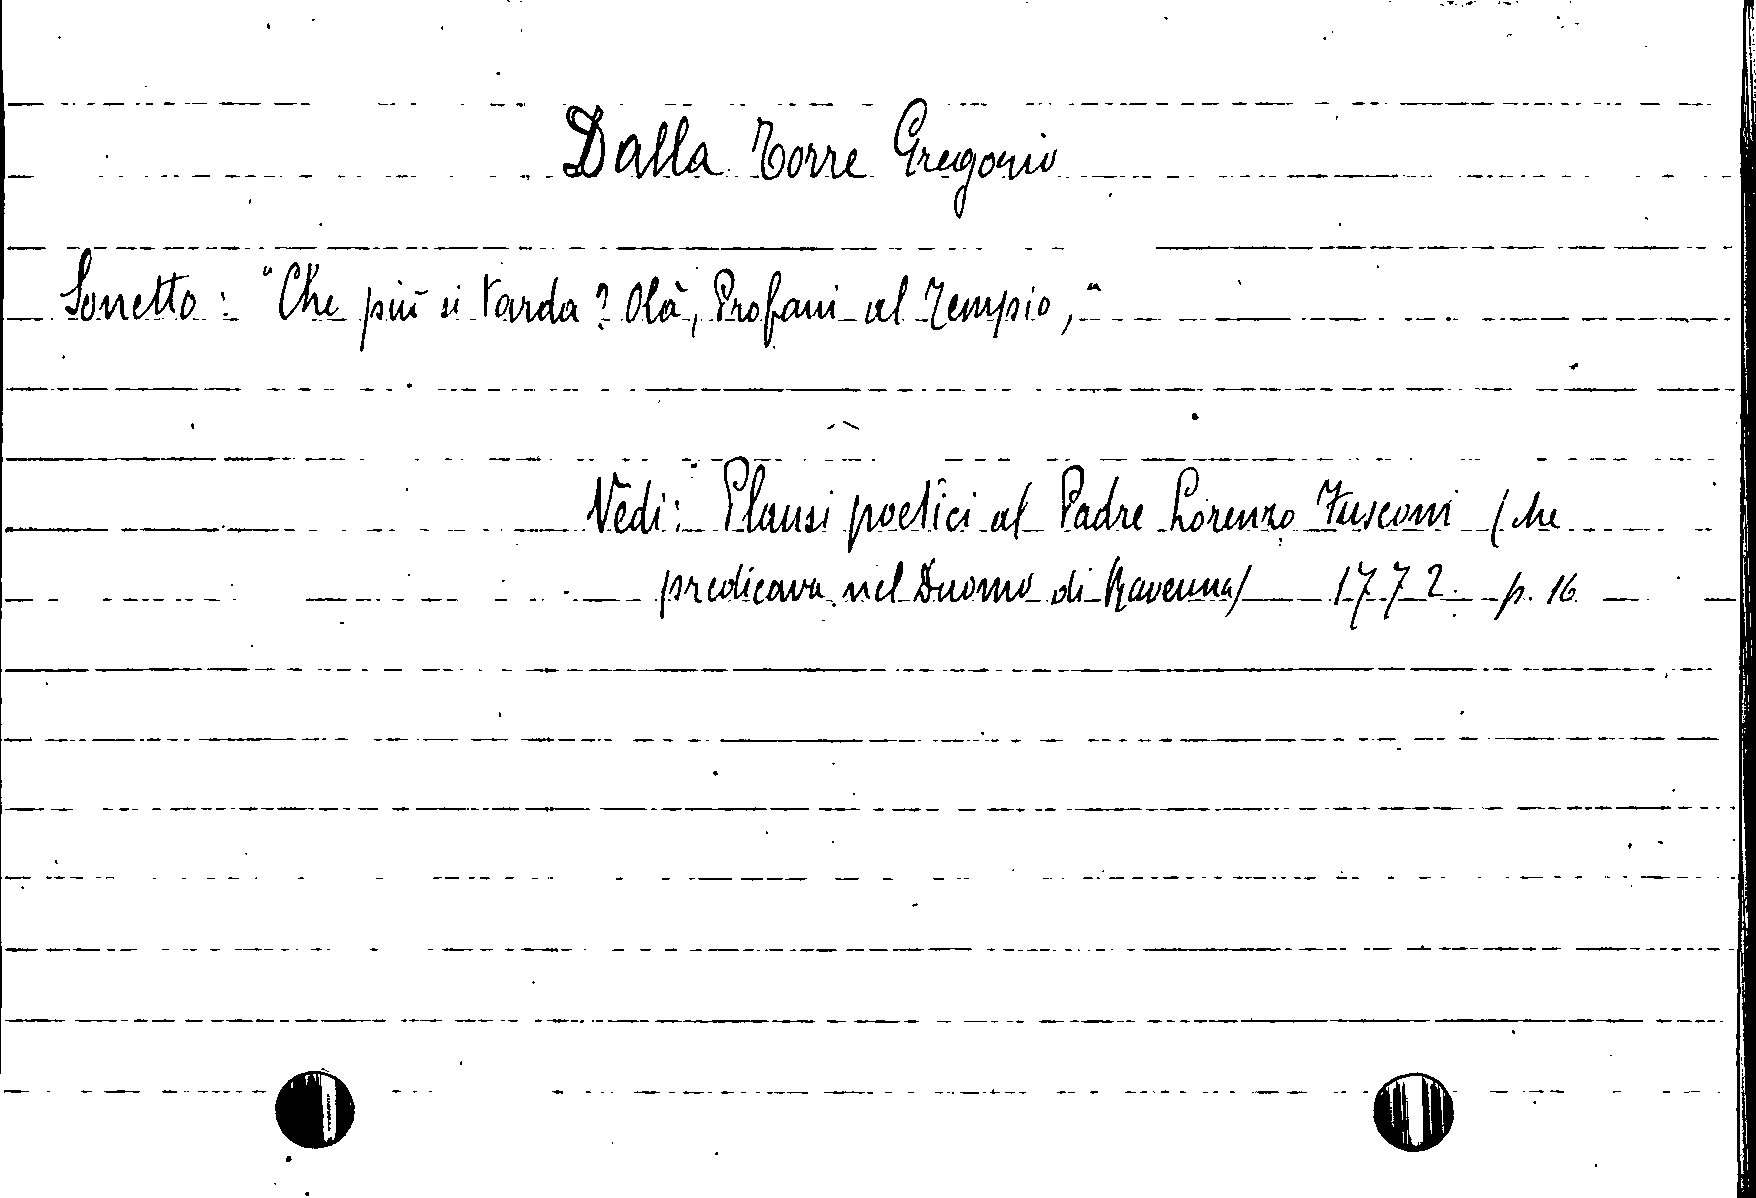 Dalla Torre Gregorio
Sonetto: "Che più si tarda? Olà, Profani al Tempio,"
Vedi: Plausi poetici al Padre Lorenzo Fusconi (che
predicava nel Duomo di Ravenna) 1772. p. 16